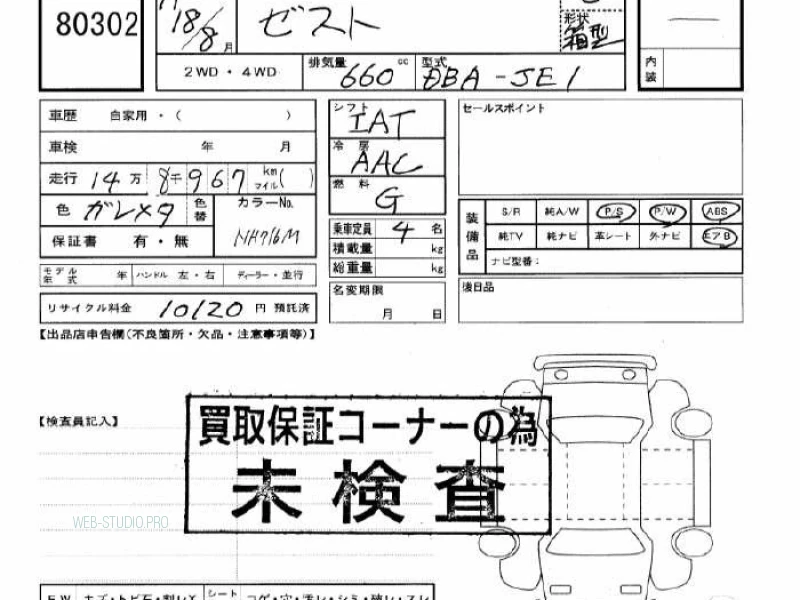 80302 18/8月 ゼスト 形状 箱型
2WD・4WD 排気量 660cc 型式 DBA-JE1 内装
車歴 自家用・( ) シフト IAT セールスポイント
車検 年 月 冷房 AAC
走行 14万8千967km マイル( ) 燃料 G
色 ガンメタ 色替 カラーNo. NH716M
保証書 有・無
乗車定員 4名
積載量 kg
総重量 kg
装備品 S/R 純A/W P/S P/W ABS
純TV 純ナビ 革シート 外ナビ エアB
ナビ型番:
モデル年式 年 ハンドル 左・右 ディーラー・並行
名変期限 月 日
後日品
リサイクル料金 10120円 預託済
【出品店申告欄(不良箇所・欠品・注意事項等)】
【検査員記入】
買取保証コーナーの為
未検査
WEB-STUDIO.PRO